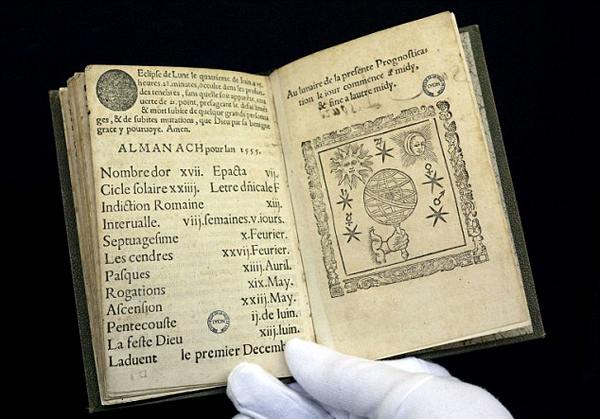 Eclipse de Lune le quatrieme de Iuin a 15.
heures 21. minutes, occulte dens les profon
des tenebres, sans quelle soit apparente, cou
uerte de 21. point, presageant le
& mort subite de quelque grands personna
ges, & de subites mutations, que Dieu par sa benigne
grace y pouruoye. Amen.
ALMANACH pour lan 1555.
Nombre dor xvii. Epacta vij.
Cicle solaire xxiij. Letre dñicale F
Indiction Romaine xiij.
Interualle. viij.semaines.v.iours.
Septuagesime x.Feurier.
Les cendres xxvij.Feurier.
Pasques xiiij.Auril.
Rogations xix.May.
Ascension xxiij.May.
Pentecouste ij.de Iuin.
La feste Dieu xiij.Iuin.
Laduent le premier Decemb
Au lunaire de la presente Prognostica-
tion le iour commence a midy,
& fine a lautre midy.